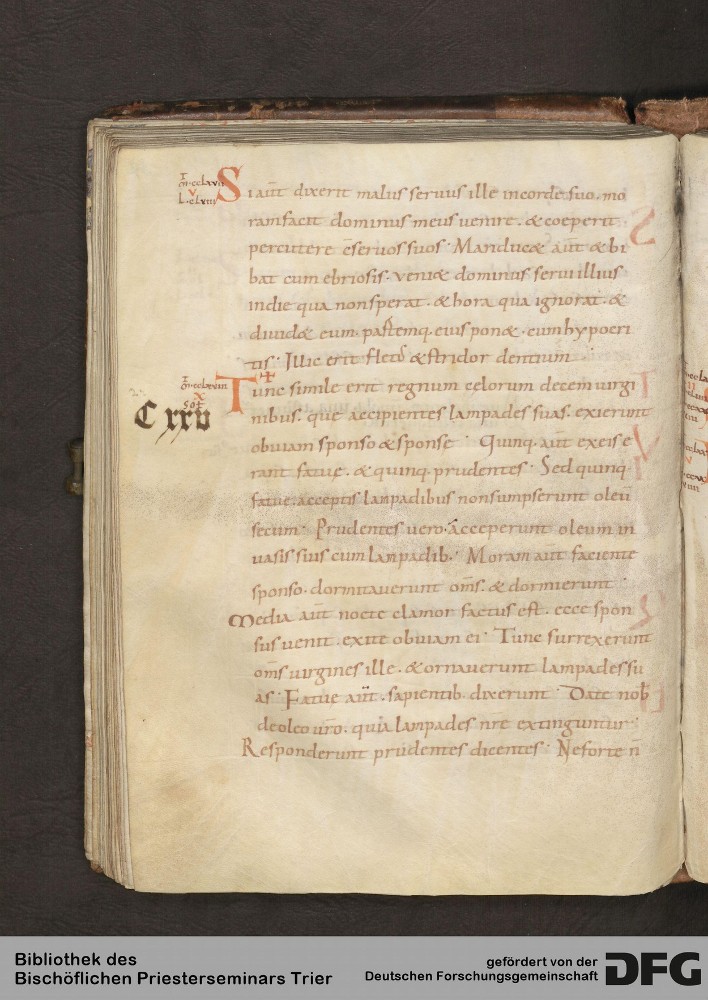 Si aūt dixerit malus seruus ille incorde suo. mo
ram facit dominus meus uenire. & coeperit
percutere c̄seruos suos. Manduc& aūt & bi
bat cum ebriosis. ueni& dominus serui illius
indie qua nonsperat. & hora qua ignorat. &
diuid& eum. partemq. eius pon& . cumhypocri
tis. Illic erit flet' & stridor dentium
Tunc simile erit regnum celorum decem uirgi
nibus. que accipientes lampades suas. exierunt
obuiam sponso & sponse. Quinq. aūt ex eis e
rant fatuę. & quinq. prudentes. Sed quinq.
fatue. acceptis lampadibus nonsumpserunt oleū
secum. Prudentes uero. acceperunt oleum in
uasis suis cum lampadib. Moram aūt faciente
sponso. dormitauerunt om̄s. & dormierunt.
Media aūt nocte clamor factus est. ecce spon
sus uenit. exite obuiam ei. Tunc surrexerunt
om̄s uirgines ille. & ornauerunt lampades su
as. Fatue aūt. sapientib. dixerunt. Date nob
deoleo ur̄o. quia lampades nr̄e extinguntur.
Responderunt prudentes dicentes. Neforte n̄
C xxv
Bibliothek des
Bischöflichen Priesterseminars Trier
gefördert von der
Deutschen Forschungsgemeinschaft
DFG